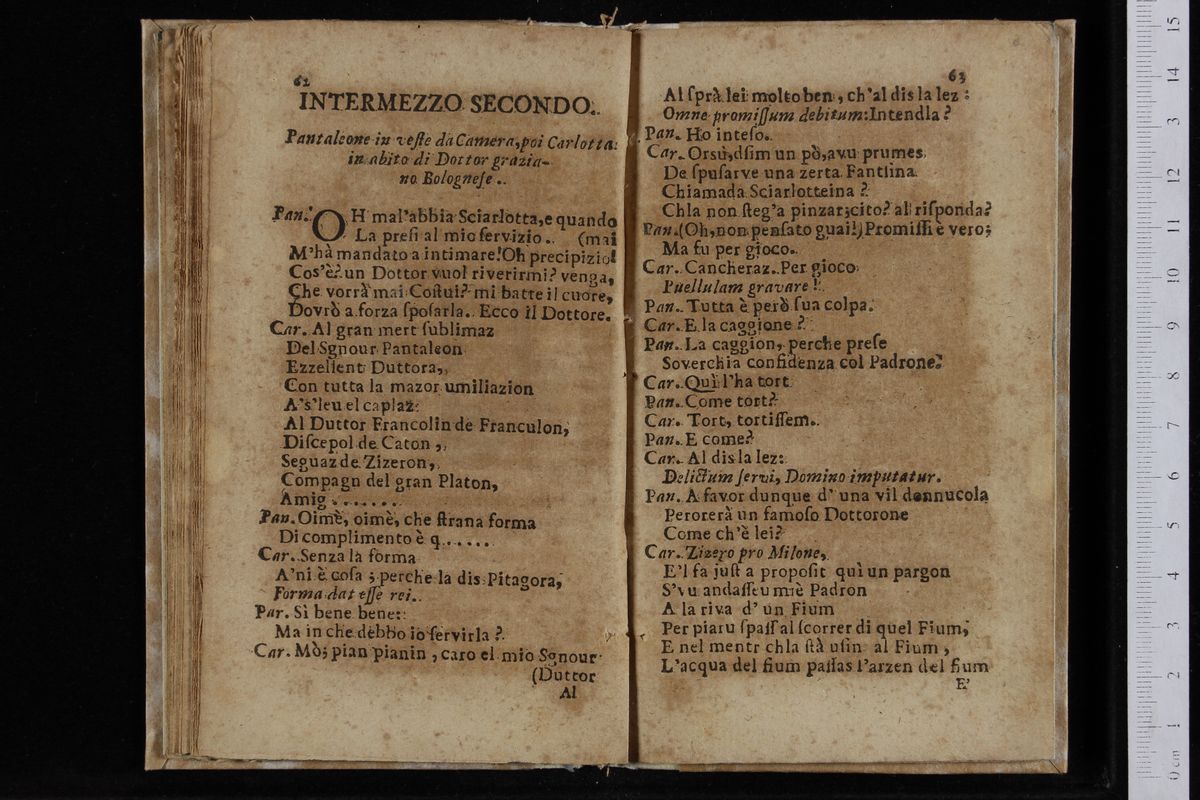 62
INTERMEZZO SECONDO.
Pantaleone in veste da Camera, poi Carlotta
in abito di Dottor grazia-
no Bolognese.
Pan. OH mal'abbia Sciarlotta, e quando
La presi al mio servizio. (mai
M'hà mandato a intimare! Oh precipizio!
Cos'è? un Dottor vuol riverirmi? venga,
Che vorrà mai Costui? mi batte il cuore,
Dovrò a forza sposarla. Ecco il Dottore.
Car. Al gran mert sublimaz
Del Sgnour Pantaleon
Ezzellent Duttora,
Con tutta la mazor umiliazion
A's'leu el caplaz:
Al Duttor Francolin de Franculon,
Discepol de Caton,
Seguaz de Zizeron,
Compagn del gran Platon,
Amig . . . . . . .
Pan. Oimè, oimè, che strana forma
Di complimento è q......
Car. Senza la forma
A'ni è cosa; perche la dis Pitagora,
Forma dat esse rei.
Par. Sì bene bene:
Ma in che debbo io servirla?
Car. Mò; pian pianin, caro el mio Sgnour
(Duttor
Al
63
Al sprà lei molto ben, ch'al dis la lez:
Omne promissum debitum: Intendla?
Pan. Ho inteso.
Car. Orsù, dsim un pò, avu prumes
De spusarve una zerta Fantsina
Chiamada Sciarlotteina?
Chla non steg'a pinzar; cito? al risponda?
Pan. (Oh, non pensato guai!) Promissi è vero;
Ma fu per gioco.
Car. Cancheraz. Per gioco
Puellulam gravare!
Pan. Tutta è però sua colpa.
Car. E la caggione?
Pan. La caggion, perche prese
Soverchia confidenza col Padrone.
Car. Quì l'ha tort
Pan. Come tort?
Car. Tort, tortissem.
Pan. E come?
Car. Al dis la lez:
Delictum servi, Domino imputatur.
Pan. A favor dunque d' una vil donnucola
Perorerà un famoso Dottorone
Come ch'è lei?
Car. Zizero pro Milone,
E'l fa just a proposit quì un pargon
S'vu andasseu miè Padron
A la riva d' un Fium
Per piaru spass al scorrer di quel Fium,
E nel mentr chla stà usin al Fium,
L'acqua del fium passas l'arzen del fium
E'